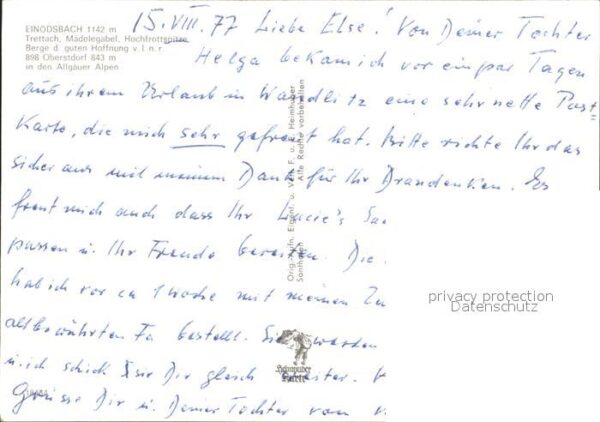 EINÖDSBACH 1142 m
Trettach, Mädelegabel, Hochfrottspitze
Berge d. guten Hoffnung v. l. n. r.
898 Oberstdorf 843 m
in den Allgäuer Alpen
15. VIII. 77 Liebe Else! Von Deiner Tochter
Helga bekam ich vor ein paar Tagen
aus ihrem Urlaub in Wandlitz eine sehr nette Post
Karte, die mich sehr gefreut hat. Bitte richte Ihr das
sicher aus mit meinem Dank für Ihr Drandenken. Es
freut mich auch dass Ihr Lucie's
passen u. Ihr Freude bereiten. Die
hab ich vor ca 1 Woche mit meinen
altbewährten Fa bestellt. Sie werden
u. ich schick sie Dir gleich weiter.
Grüsse Dir u. Deiner Tochter von
Orig. Aufn. Eigent. u. Verl. F. u. E. Heimhuber
Sonthofen Alle Rechte vorbehalten
privacy protection
Datenschutz